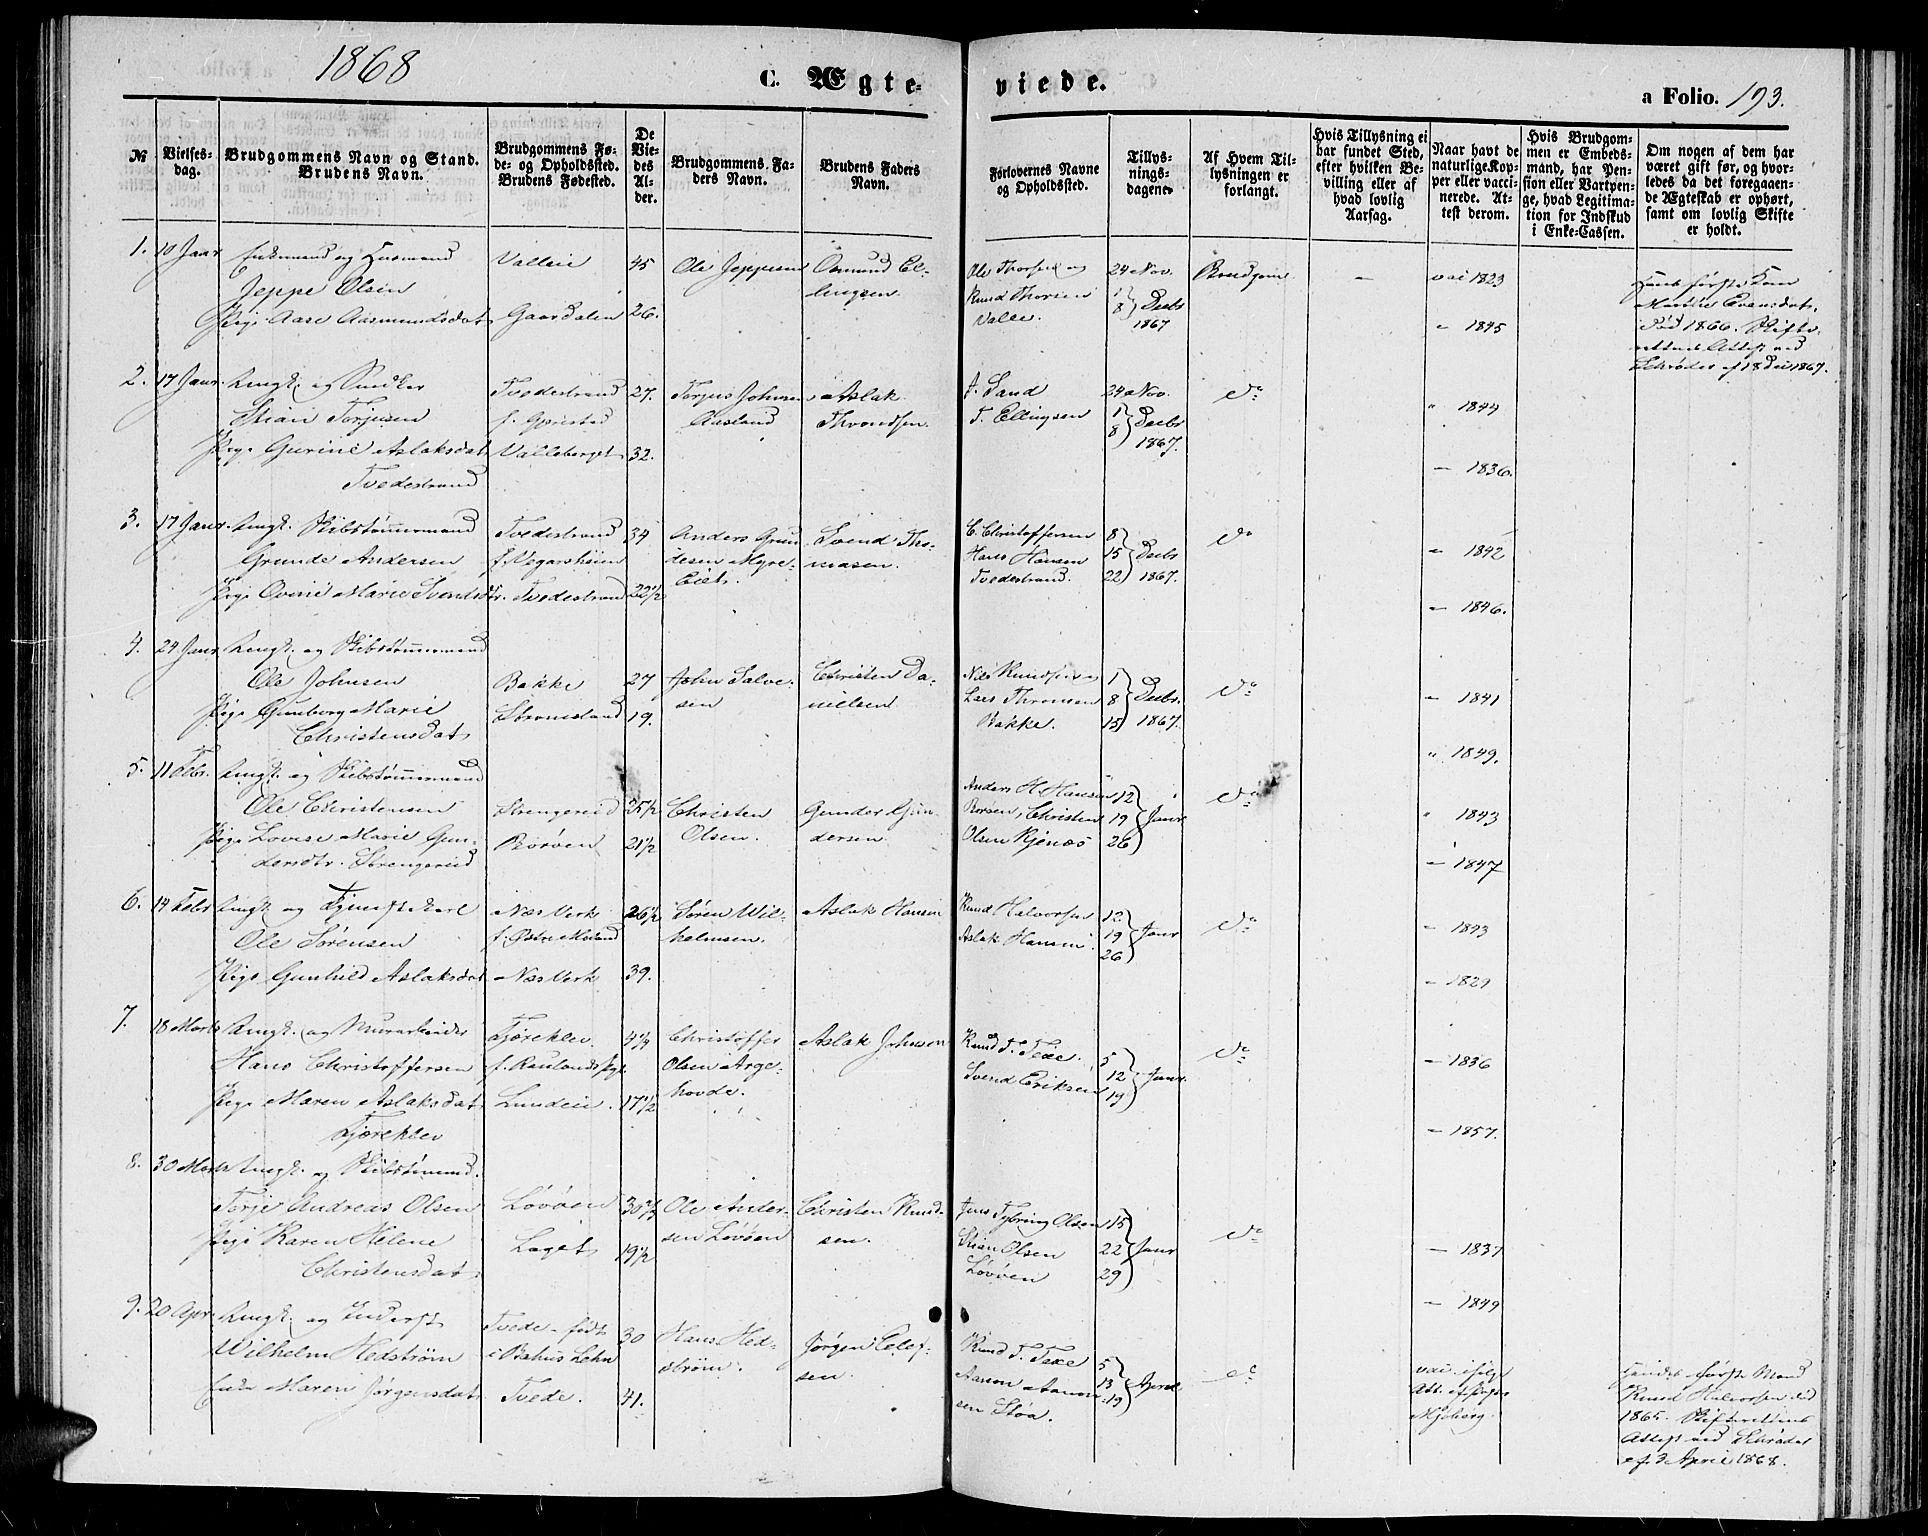 1868
C. Ægte-
viede.
a Folio. 193.
№
Vielses-
dag.
Brudgommens Navn og Stand.
Brudens Navn.
Brudgommens Fø-
de- og Opholdssted.
Brudens Fødested.
De
Vie-
des
Al-
der.
Brudgommens Fa-
ders Navn.
Brudens Faders
Navn.
Forlovernes Navne
og Opholdssted.
Tillys-
nings-
dagene.
Af Hvem Til-
lysningen er
forlangt.
Hvis Tillysning ei
har fundet Sted,
efter hvilken Be-
villing eller af
hvad lovlig
Aarsag.
Naar havt de
naturlige Kop-
per eller vacci-
nerede. At-
test derom.
Hvis Brudgom-
men er Embeds-
mand, har Pen-
sion eller Vartpen-
ge, hvad Legitima-
tion for Indskud
i Enke-Cassen.
Om nogen af dem har
været gift før, og hvor-
ledes da det foregaaen-
de Ægteskab er ophørt,
samt om lovlig Skifte
er holdt.
1. 10 Janr Enkemand og Husmand
Jeppe Olsen
Pige Aase Aasmundsdat
Valleie
Gaardalen
45
26.
Ole Jeppesen
Osmund El-
lingsen.
Ole Thorsen og
Knud Thorsen
Valle.
24 Nov.
1
8 } Decbr
1867
Brudgom
—
vac 1823
" 1845
Hans første Kone
Marthe Evensdat.
død 1866. Skifte-
rettens Attest ved
Schrøder af 18 Dec 1867.
2. 17 Janr. Ungk. og Snedker
Stian Torjusen
Pige Gurine Aslaksdat
Tvedestrand
Tvedestrand
f. Gjerestad
Valleberget
27.
32.
Torjus Johnsen
Aasland
Aslak
Throndsen.
J. Sand
T. Ellingsen
24 Nov.
1
8 } Decbr
1867.
do
" 1844
— 1836.
3. 17 Janr. Ungk. Skibstømmermand
Grunde Andersen
Pige Ovine Marie Svendsdtr.
Tvedestrand
f. Vegarsheien
Tvedestrand
34
22½
Anders Grun-
desen Myre-
Eiet.
Svend Tho-
masen.
C. Christoffersen
Hans Hansen
Tvedestrand.
8
15
22 } Decbr
1867.
do
" 1842
— 1846.
4. 24 Janr Ungk. og Skibstømmermand
Ole Johnsen
Pige Gunborg Marie
Christensdat
Bakke
Stromsland
27
19.
John Salve-
sen
Christen Da-
nielsen.
Nils Knudsen
Lars Thronsen
Bakke.
1
8
15 } Decbr.
1867.
do
— 1841
" 1849.
5. 11 Febr. Ungk. og Skibstømmermand
Ole Christensen
Pige Lovise Marie Gun-
dersdtr. Strengereid
Strengereid
Borøen
25½
21½
Christen
Olsen.
Gunder Gun-
dersen.
Anders H. Hansen
Borøen, Christen
Olsen Kjenæs
12
19
26 } Janr
do
" 1843
— 1847
6. 14 Febr Ungk og Tjenestekarl
Ole Sørensen
Pige Gunhild Aslaksdat
Næs Verk
f. Østre Moland
Næs Verk
26½
39.
Søren Wil-
helmsen.
Aslak Hansen
Knud Halvorsen
Aslak Hansen.
12
19
26 } Janr
do
— 1843
— 1829
7. 18 Marts Ungk. og Murarbeider
Hans Christoffersen
Pige Maren Aslaksdat
Fjæreklev
Fjæreklev.
f.
Lundeie.
17½
Christoffer
Olsen Arge-
hovde.
Aslak Johnsen
Knud T. Texe.
Svend Eriksen
5
12
19 } Janr.
do
— 1836
— 1857.
8. 30 Marts Ungk. og Skibstømmermd.
Torje Andreas Olsen
Pige Karen Helene
Christensdat
Løvøen
Laget
19½
Ole Ander-
sen Løvøen
Christen Knud-
sen.
Jens Tybring Olsen
Stian Olsen
Løvøen
15
22
29 } Janr
do
— 1837
— 1849
9. 20 Apr. Ungk. og
Wilhelm Hedstrøm
Enke Maren Jørgensdat
Tvede. født
i Bahus Lehn
Tvede.
30
41.
Hans Hed-
strøm.
Jørgen Elef-
sen.
Knud T. Texe
Aanon Aanon-
sen Sløa.
5
13
19 } April
do
vac. ifølge
Att. af
Mjøberg.
Hendes første Mand
Knud Halvorsen død
1865. Skifterettens
Attest ved Schrøder
af 3 April 1868.